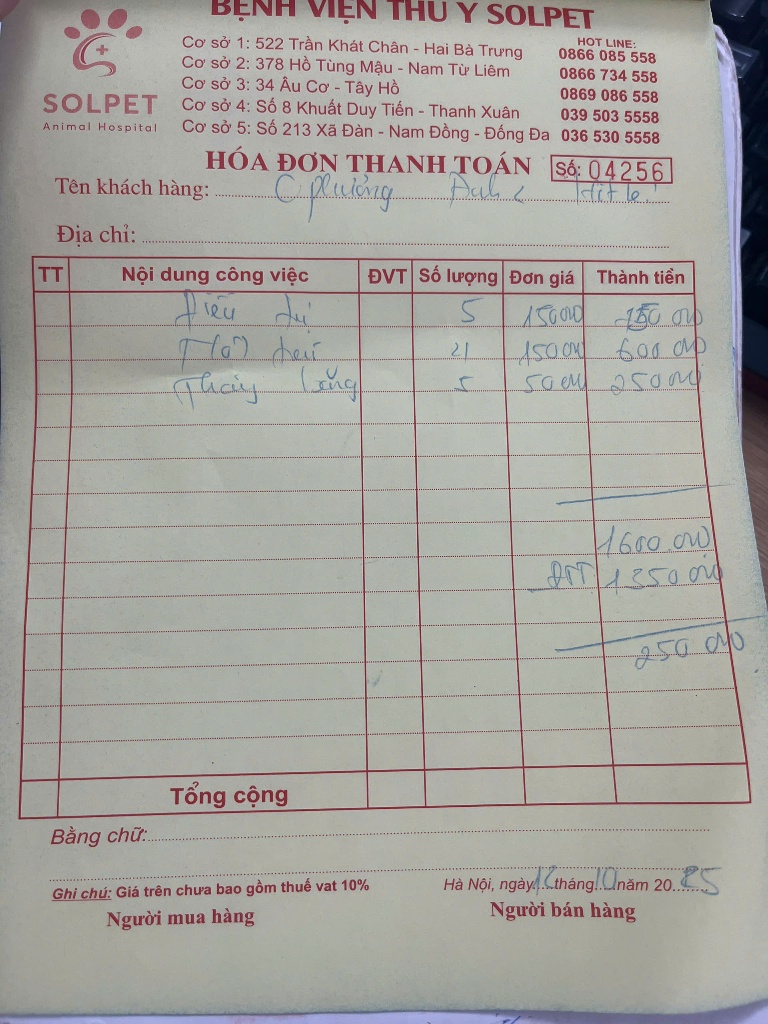 BỆNH VIỆN THÚ Y SOLPET
SOLPET
Animal Hospital
Cơ sở 1: 522 Trần Khát Chân - Hai Bà Trưng
Cơ sở 2: 378 Hồ Tùng Mậu - Nam Từ Liêm
Cơ sở 3: 34 Âu Cơ - Tây Hồ
Cơ sở 4: Số 8 Khuất Duy Tiến - Thanh Xuân
Cơ sở 5: Số 213 Xã Đàn - Nam Đồng - Đống Đa
HOT LINE:
0866 085 558
0866 734 558
0869 086 558
039 503 5558
036 530 5558
HÓA ĐƠN THANH TOÁN Số: 04256
Tên khách hàng: C phương
Địa chỉ:
TT Nội dung công việc ĐVT Số lượng Đơn giá Thành tiền
Điều trị 5 150 000 750 000
600 000
Thay băng 5 50 000 250 000
1600 000
ĐTT 1350 000
250 000
Tổng cộng
Bằng chữ:
Ghi chú: Giá trên chưa bao gồm thuế vat 10%
Hà Nội, ngày 12 tháng 10 năm 20 25
Người mua hàng
Người bán hàng